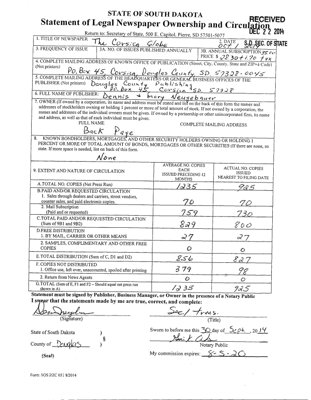 STATE OF SOUTH DAKOTA
Statement of Legal Newspaper Ownership and Circulation
RECEIVED
DEC 22 2014
S.D. SEC. OF STATE
Return to: Secretary of State, 500 E. Capitol, Pierre, SD 57501-5077
1. TITLE OF NEWSPAPER
The Corsica Globe
2. DATE
Oct 1
3. FREQUENCY OF ISSUE
3A. NO. OF ISSUES PUBLISHED ANNUALLY
3B. ANNUAL SUBSCRIPTION
PRICE $
4. COMPLETE MAILING ADDRESS OF KNOWN OFFICE OF PUBLICATION (Street, City, County, State and ZIP+4 Code)
(Not printers)
PO Box 45 Corsica Douglas County SD 57328-0045
5. COMPLETE MAILING ADDRESS OF THE HEADQUARTERS OF GENERAL BUSINESS OFFICES OF THE
PUBLISHER (Not printer)
Douglas County Publishing
PO Box 45 Corsica SD 57328
6. FULL NAME OF PUBLISHER:
Dennis & Mary
7. OWNER (If owned by a corporation, its name and address must be stated and
FULL NAME
COMPLETE MAILING ADDRESS
Back Page
8. KNOWN BONDHOLDERS, MORTGAGEES, AND OTHER SECURITY HOLDERS OWNING OR HOLDING 1
PERCENT OR MORE OF TOTAL AMOUNT OF BONDS, MORTGAGES OR OTHER SECURITIES (If there are none, so
state. If more space is needed, list on back of this form.
None
9. EXTENT AND NATURE OF CIRCULATION
AVERAGE NO. COPIES
EACH
ISSUED PRECEDING 12
MONTHS
ACTUAL NO. COPIES
ISSUED
NEAREST TO FILING DATE
A. TOTAL NO. COPIES (Net Press Run)
1235
925
B. PAID AND/OR REQUESTED CIRCULATION
1. Sales through dealers and carriers, street vendors,
counter sales, and paid electronic copies.
70
70
2. Mail Subscription
(Paid and or requested)
759
730
C. TOTAL PAID AND/OR REQUESTED CIRCULATION
(Sum of 9B1 and 9B2)
829
800
D. FREE DISTRIBUTION
1. BY MAIL, CARRIER OR OTHER MEANS
27
27
2. SAMPLES, COMPLIMENTARY AND OTHER FREE
COPIES
0
0
E. TOTAL DISTRIBUTION (Sum of C, D1 and D2)
856
827
F. COPIES NOT DISTRIBUTED
1. Office use, left over, unaccounted, spoiled after printing
379
98
2. Return from News Agents
0
0
G. TOTAL (Sum of E, F1 and F2 - Should equal net press run
shown in A)
1235
925
Statement must be signed by Publisher, Business Manager, or Owner in the presence of a Notary Public
I swear that the statements made by me are true, correct, and complete:
(Signature)
Sec/ Treas.
(Title)
State of South Dakota
County of Douglas
(Seal)
Sworn to before me this 30 day of Sept, 2014
Notary Public
My commission expires: 8-5-20